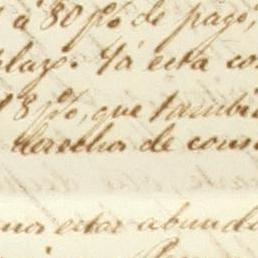 á 80 p% de pago,
plazo. Tá esta co
18 p%, que tambi
derecho de cons
nos estar abunda